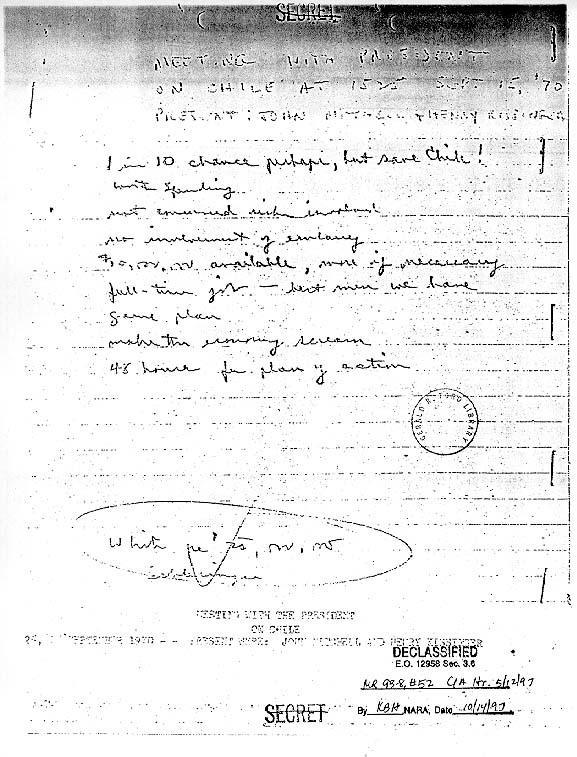 SECRET
MEETING WITH PRESIDENT
ON CHILE AT 1525 SEPT 15, '70
PRESENT: JOHN MITCHELL & HENRY KISSINGER
1 in 10 chance perhaps, but save Chile!
worth spending
not concerned risks involved
no involvement of embassy
$10,000,000 available, more if necessary
full-time job — best men we have
game plan
make the economy scream
48 hours for plan of action
GERALD R. FORD LIBRARY
White
MEETING WITH THE PRESIDENT
ON CHILE
SEPTEMBER 1970 -- PRESENT WERE: JOHN MITCHELL AND HENRY KISSINGER
DECLASSIFIED
E.O. 12958 Sec. 3.6
MR 98-8, #52 CIA Ltr. 5/12/97
By KBH NARA, Date 10/14/97
SECRET